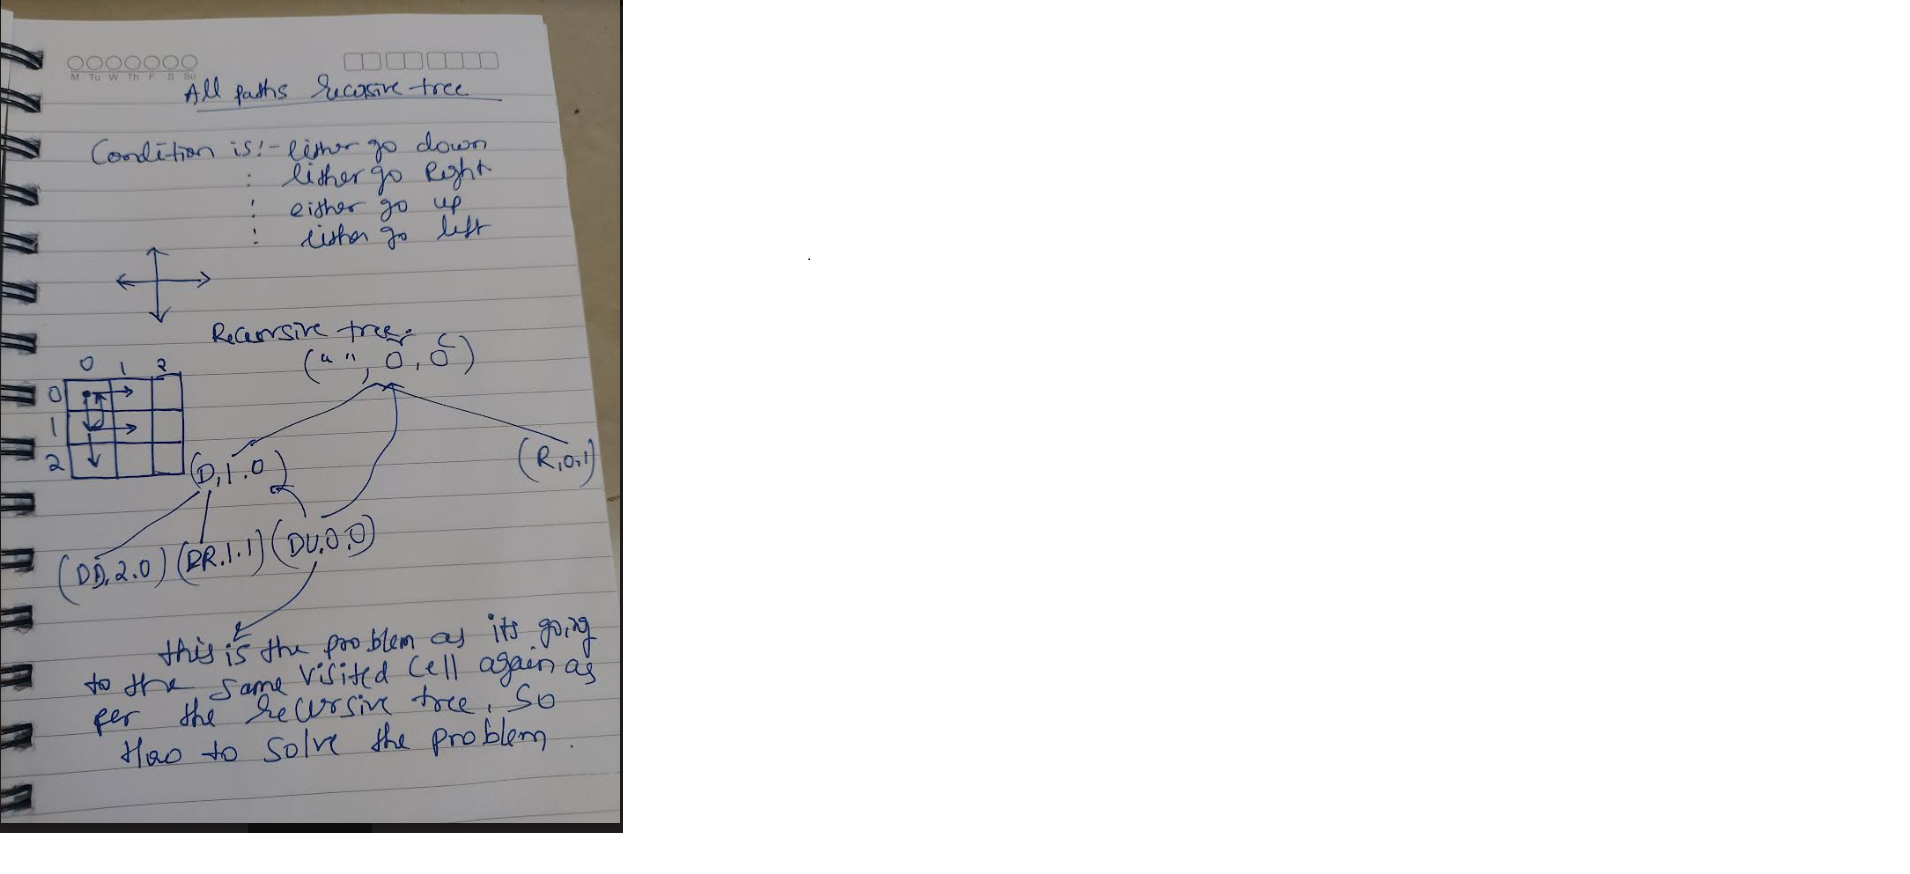 M Tu W Th F S Su
All paths recursive tree
Condition is:- either go down
: either go Right
: either go up
: either go left
Recursive tree:
(" ", 0, 0)
0 1 2
0
1
2
(D,1.0)
(R,0,1)
(DD,2.0) (DR.1.1) (DU,0,0)
this is the problem as its going
to the same visited cell again as
per the recursive tree, so
How to solve the problem.